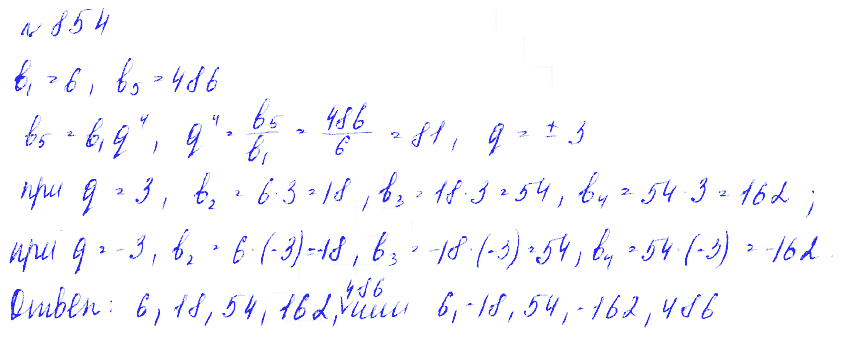 № 854
b₁ = 6, b₅ = 486
b₅ = b₁q⁴, q⁴ = b₅/b₁ = 486/6 = 81, q = ± 3
при q = 3, b₂ = 6·3 = 18, b₃ = 18·3 = 54, b₄ = 54·3 = 162;
при q = -3, b₂ = 6·(-3) = -18, b₃ = -18·(-3) = 54, b₄ = 54·(-3) = -162
Ответ: 6, 18, 54, 162, 486 или 6, -18, 54, -162, 486